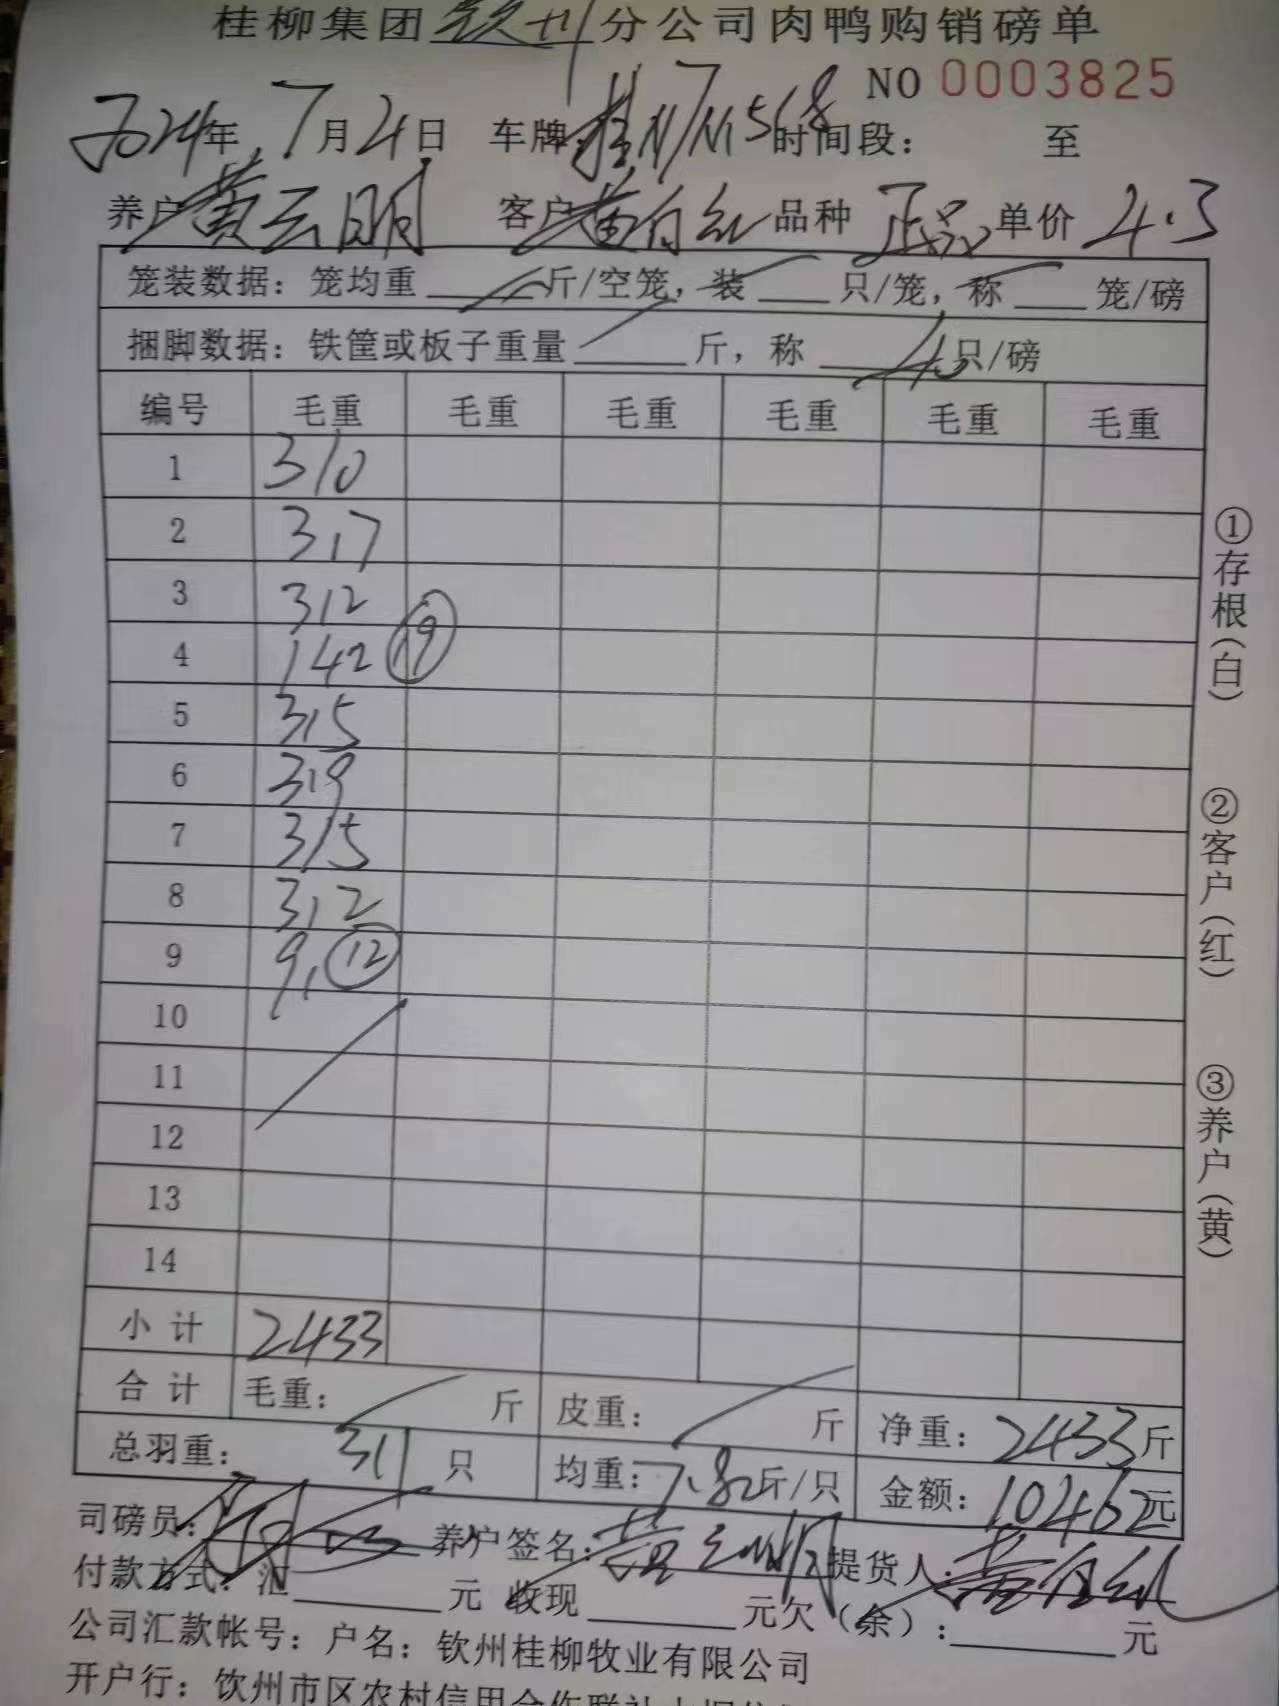 桂柳集团钦州分公司肉鸭购销磅单
NO 0003825
2024年7月4日 车牌 时间段: 至
养户 黄云明 客户 黄 品种 正品 单价 4.3
笼装数据: 笼均重 斤/空笼, 装 只/笼, 称 笼/磅
捆脚数据: 铁筐或板子重量 斤, 称 40只/磅
编号 毛重 毛重 毛重 毛重 毛重 毛重
1 310
2 317
3 312
4 142 ⑲
5 315
6 319
7 315
8 312
9 91 ⑫
10
11
12
13
14
小计 2433
合计 毛重: 斤 皮重: 斤 净重: 2433斤
总羽重: 311 只 均重: 7.82斤/只 金额: 10462元
司磅员: 养户签名: 黄云明 提货人: 黄
付款方式: 汇 元 收现 元 欠(余): 元
公司汇款帐号: 户名: 钦州桂柳牧业有限公司
开户行: 钦州市区农村信用合作联社
①存根(白)
②客户(红)
③养户(黄)